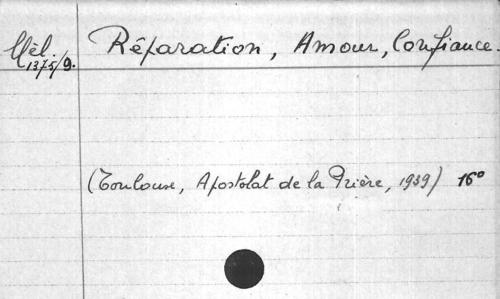 Mél. Réparation, Amour, Confiance.
1375/9.
(Toulouse, Apostolat de la Prière, 1939) 16°